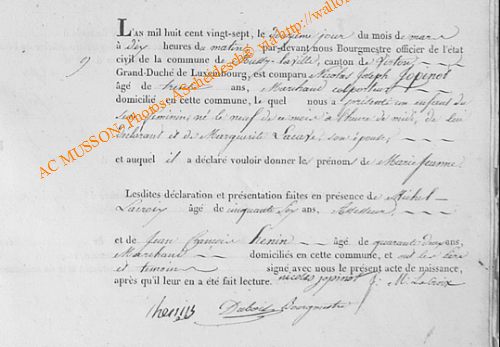 L'AN mil huit cent vingt-sept, le dixième jour du mois de mars
à dix heures du matin, par-devant nous Bourgmestre officier de l'état
9 civil de la commune de Mussy-la-ville, canton de Virton,
Grand-Duché de Luxembourg, est comparu Nicolas Joseph Jopinot
âgé de trente ans, Marchand colporteur
domicilié en cette commune, le quel nous a présenté un enfant du
sexe féminin né le neuf de mars à l'heure de midi, de lui
déclarant et de Marguerite son épouse
et auquel il a déclaré vouloir donner les prénoms de Marie Jeanne
Lesdites déclaration et présentation faites en présence de Michel
Lacroix âgé de cinquante ans, Assesseur,
et de Jean François henin âgé de quarante ans,
Marchand domiciliés en cette commune, et ont le père
et témoins signé avec nous le présent acte de naissance,
après qu'il leur en a été fait lecture. nicolas jopinot J. M. Lacroix
henin Dubois Bourgmestre
AC MUSSON-Photos AScherdesch© via http://wallo